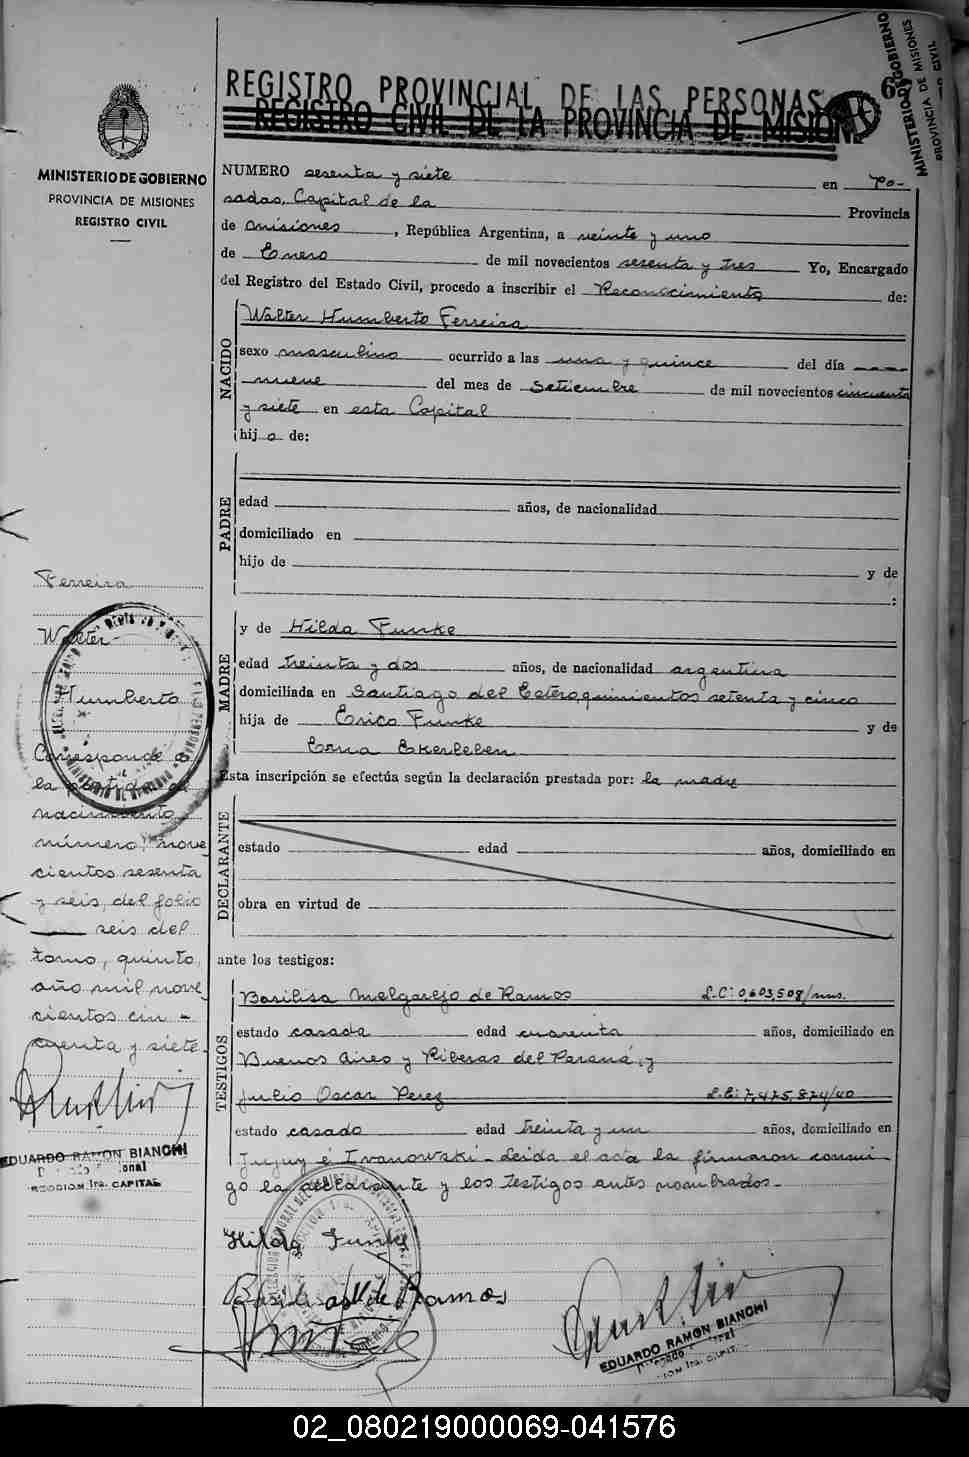 MINISTERIO DE GOBIERNO
PROVINCIA DE MISIONES
REGISTRO CIVIL
MINISTERIO DE GOBIERNO
PROVINCIA DE MISIONES
REGISTRO PROVINCIAL DE LAS PERSONAS
REGISTRO CIVIL DE LA PROVINCIA DE MISIONES
NUMERO sesenta y siete en Po-
sadas, Capital de la Provincia
de Misiones, República Argentina, a veinte y uno
de Enero de mil novecientos sesenta y tres Yo, Encargado
del Registro del Estado Civil, procedo a inscribir el Reconocimiento de:
NACIDO
Walter Humberto Ferreira
sexo masculino ocurrido a las una y quince del día
nueve del mes de Setiembre de mil novecientos cincuenta
y siete en esta Capital
hijo de:
PADRE
edad años, de nacionalidad
domiciliado en
hijo de y de
:
MADRE
y de Hilda Funke
edad treinta y dos años, de nacionalidad argentina
domiciliada en Santiago del Estero quinientos setenta y cinco
hija de Erico Funke y de
Erna Ekerleben
Esta inscripción se efectúa según la declaración prestada por: la madre
DECLARANTE
estado edad años, domiciliado en
obra en virtud de
ante los testigos:
TESTIGOS
Basilisa Melgarejo de Ramos L.C: 0,603,508/mns.
estado casada edad cuarenta años, domiciliado en
Buenos Aires y Riberas del Paraná, y
Julio Oscar Perez L.E: 7,475,874/40
estado casado edad treinta y un años, domiciliado en
Jujuy é Ivanowski - Leida el acta la firmaron conmi-
go la declarante y los testigos antes nombrados.-
Hilda Funke
Basilisa M de Ramos
EDUARDO RAMON BIANCHI
Ferreira
Walter
Humberto
Corresponde a
la partida de
nacimiento
número, nove
cientos sesenta
y seis, del folio
seis del
tomo, quinto,
año mil nove
cientos cin -
cuenta y siete.
EDUARDO RAMON BIANCHI
1ra. CAPITAL
02_080219000069-041576